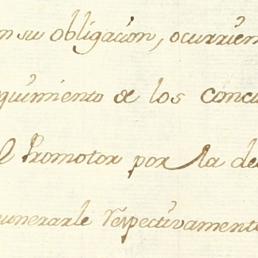 n su obligacion, ocurrien
quimiento de los concu
el Promotor por la de
unerarle respectivamente